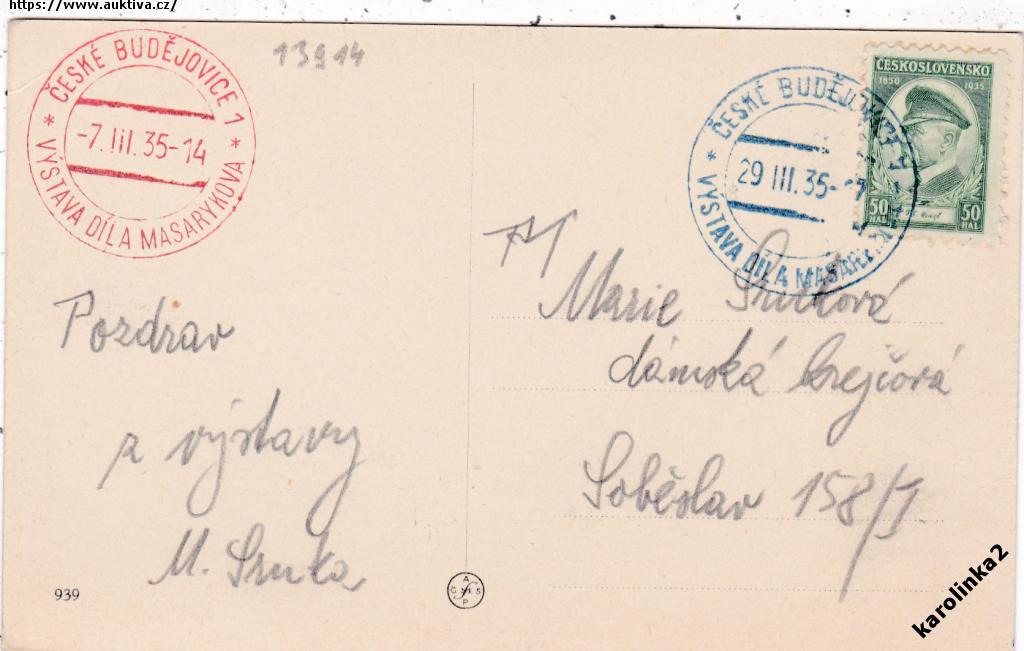 https://www.auktiva.cz/
ČESKÉ BUDĚJOVICE 1
-7.III.35-14
* VÝSTAVA DÍLA MASARYKOVA *
13914
ČESKÉ BUDĚJOVICE 1
29 III. 35-
* VÝSTAVA DÍLA MASARYK
ČESKOSLOVENSKO
1850 1935
50 HAL 50 HAL
Pozdrav
z výstavy
M. Srnka
Marie Srnková
dámská krejčová
Soběslav 158/I.
939
karolinka2